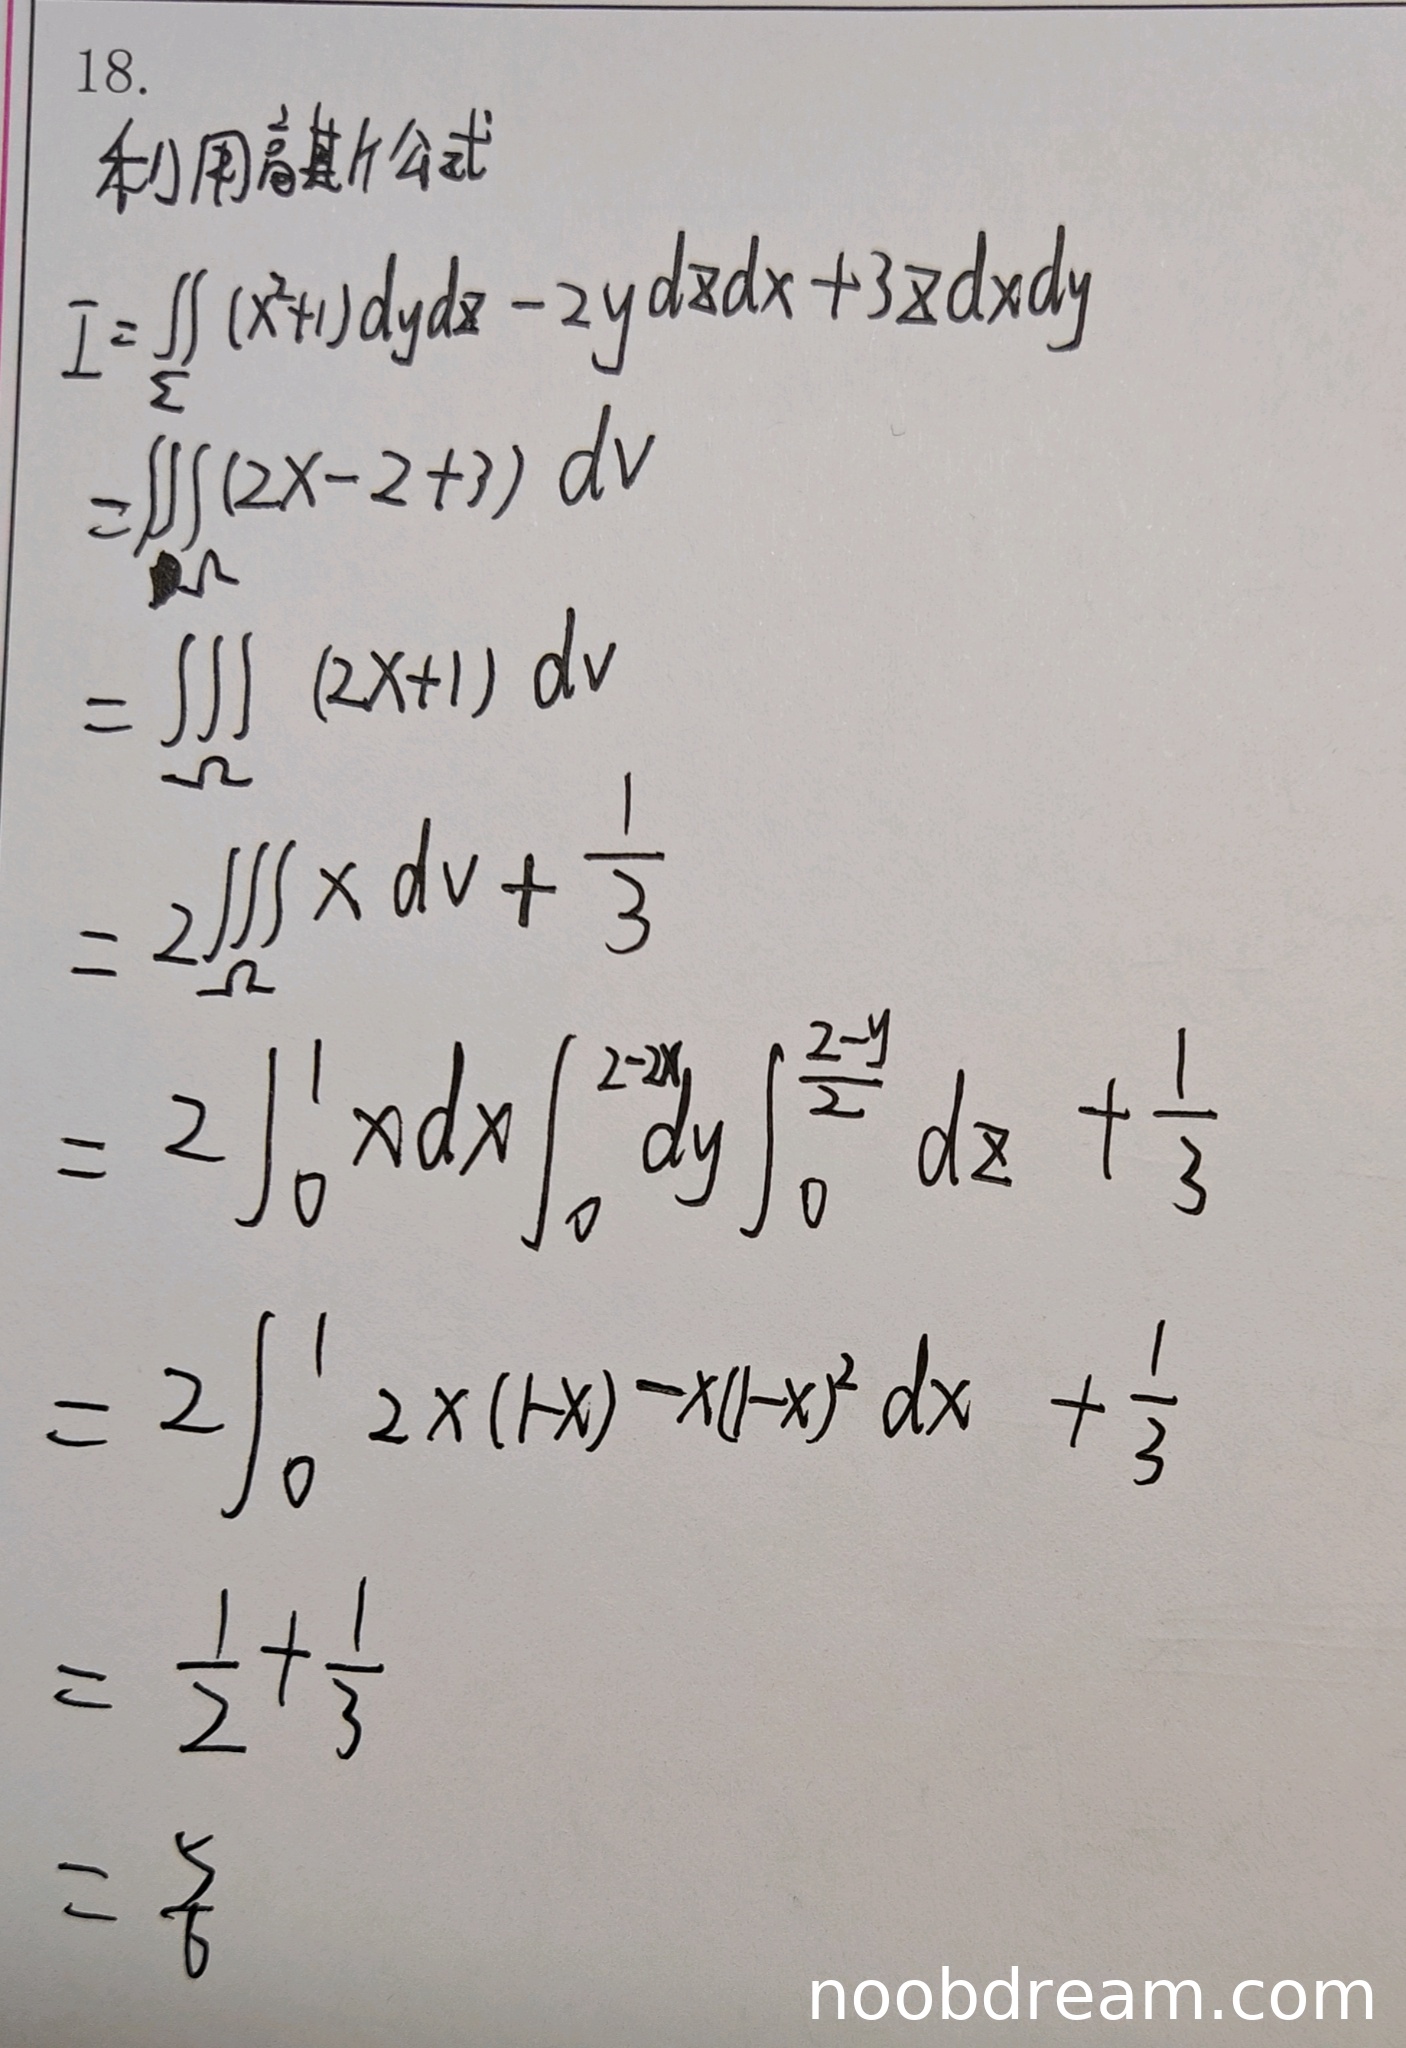 18.
利用高斯公式
I = ∬_Σ (x²+1) dydz - 2y dzdx + 3z dxdy
= ∭_Ω (2x - 2 + 3) dv
= ∭_Ω (2x+1) dv
= 2∭_Ω x dv + 1/3
= 2∫_0^1 x dx ∫_0^{2-2x} dy ∫_0^{(2-y)/2} dz + 1/3
= 2∫_0^1 2x(1-x) - x(1-x)² dx + 1/3
= 1/2 + 1/3
= 5/6
noobdream.com